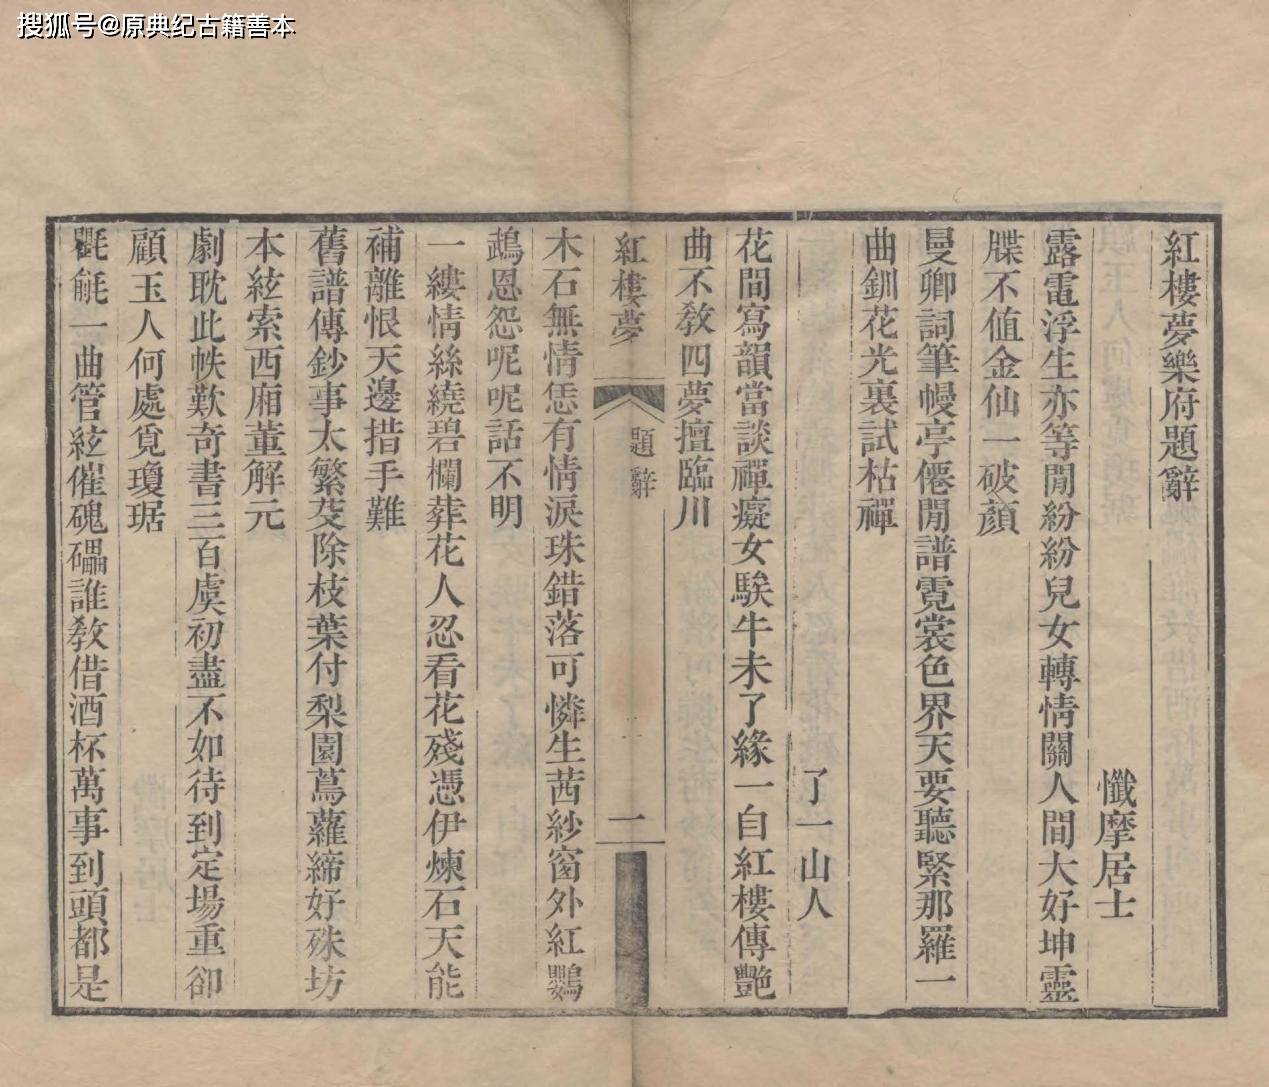 搜狐号@原典纪古籍善本
紅樓夢樂府題辭
懺摩居士
露電浮生亦等閒紛紛兒女轉情關人間大好坤靈
牒不值金仙一破顏
曼卿詞筆幔亭僊閒譜霓裳色界天要聽緊那羅一
曲釧花光裏試枯禪
了一山人
花間寫韻當談禪癡女騃牛未了緣一自紅樓傳艷
曲不教四夢擅臨川
紅樓夢
題辭
一
木石無情恁有情淚珠錯落可憐生茜紗窗外紅鸚
鵡恩怨呢呢話不明
一縷情絲繞碧欄葬花人忍看花殘憑伊煉石天能
補離恨天邊措手難
舊譜傳鈔事太繁芟除枝葉付梨園蔦蘿締好殊坊
本絃索西廂董解元
劇耽此帙歎奇書三百虞初盡不如待到定場重卻
顧玉人何處覓瓊琚
氍毹一曲管絃催磈礧誰教借酒杯萬事到頭都是